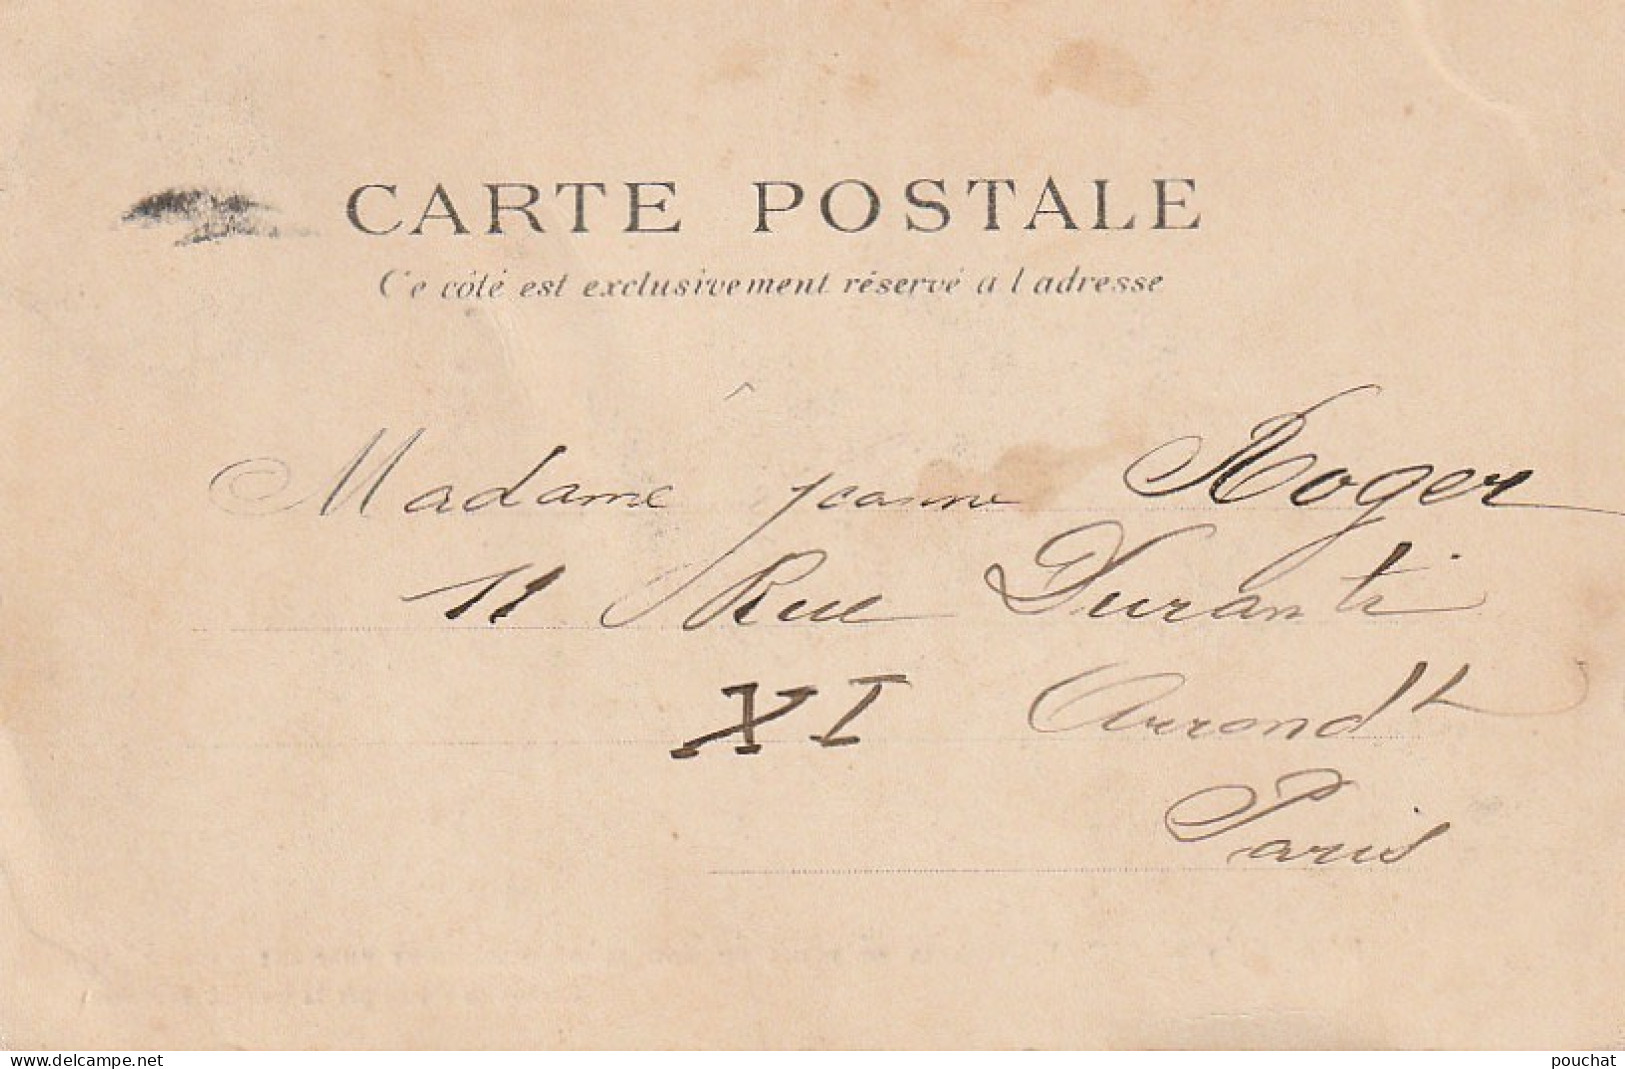 CARTE POSTALE
Ce côté est exclusivement réservé a l adresse
Madame Jeanne Roger
11 Rue Duranti
XI Arrondt
Paris
www.delcampe.net
pouchat